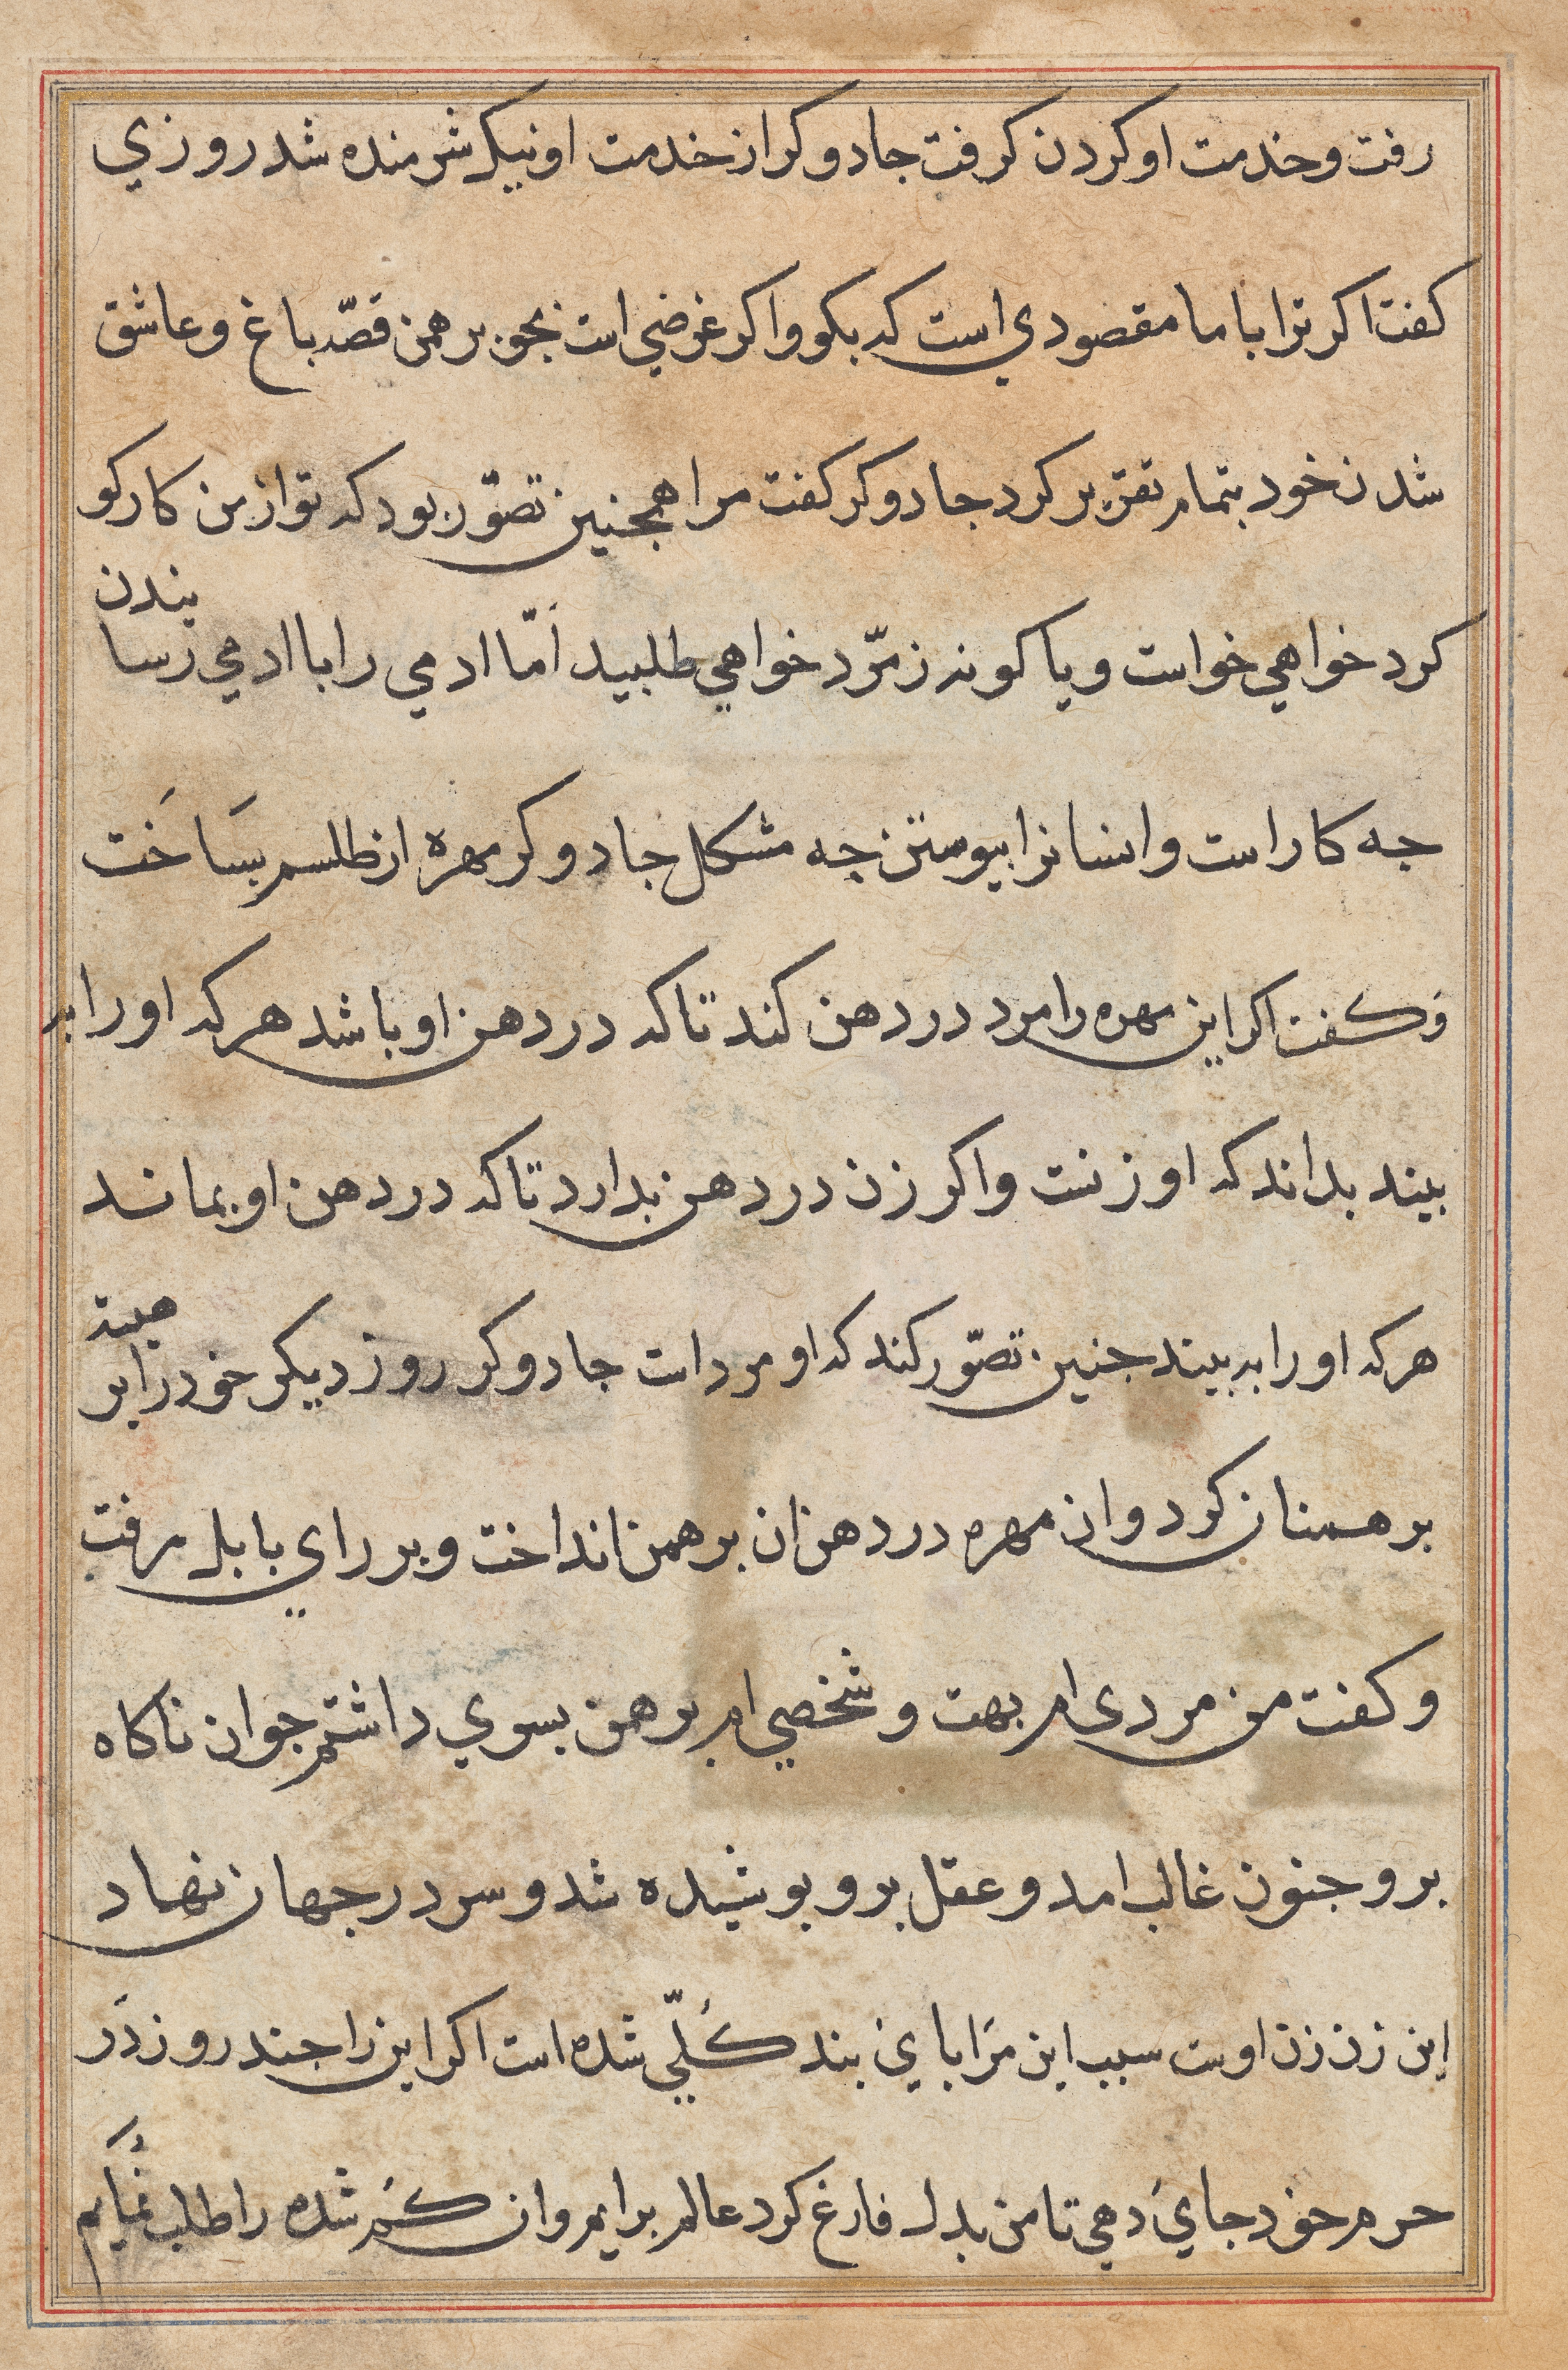 رفت وخدمت او كردن كرفت جادوكر از خدمت او نيك شرمنده شد روزي
كفت اكر ترا با ما مقصودي است كه بكو واكر غرضي است بجو برهمن قصّه باغ وعاشق
شدن خود بتمام تقرير كرد جادوكر كفت مرا همجنين تصوّر بود كه تو از من كار كو
كرد خواهي خواست ويا كونه زمرّد خواهي طلبيد امّا ادمي را با ادمي رسا نيدن
جه كار است وانسانرا بيوستن جه مشكل جادوكر مهره از طلسم بسَاخَت
وَكفت اكر اين مهره را مرد در دهن كند تا كه در دهن او باشد هر كه او را به
بيند بداند كه او زنست واكر زن در دهن بدارد تا كه در دهن او بماند
هر كه او را به بيند جنين تصوّر كند كه او مرد است جادوكر روز ديكر خود را بر هيئة
برهمنان كرد وان مهره در دهن ان برهمن انداخت وبر راي بابل برفت
وكفت من مردي ام بهت وشخصي ام برهمن بسري داشتم جوان ناكاه
برو جنون غالب امد وعقل برو بوشيده شد وسر در جهان نهاد
اين زن زن اوست سبب اين مَرَا باي بند كُلّي شده است اكر اين را جند روز دَر
حرم خود جايَ دهي تا من بدل فارغ كرد عالم برايم وان كُم شده را طلب نُمَايم